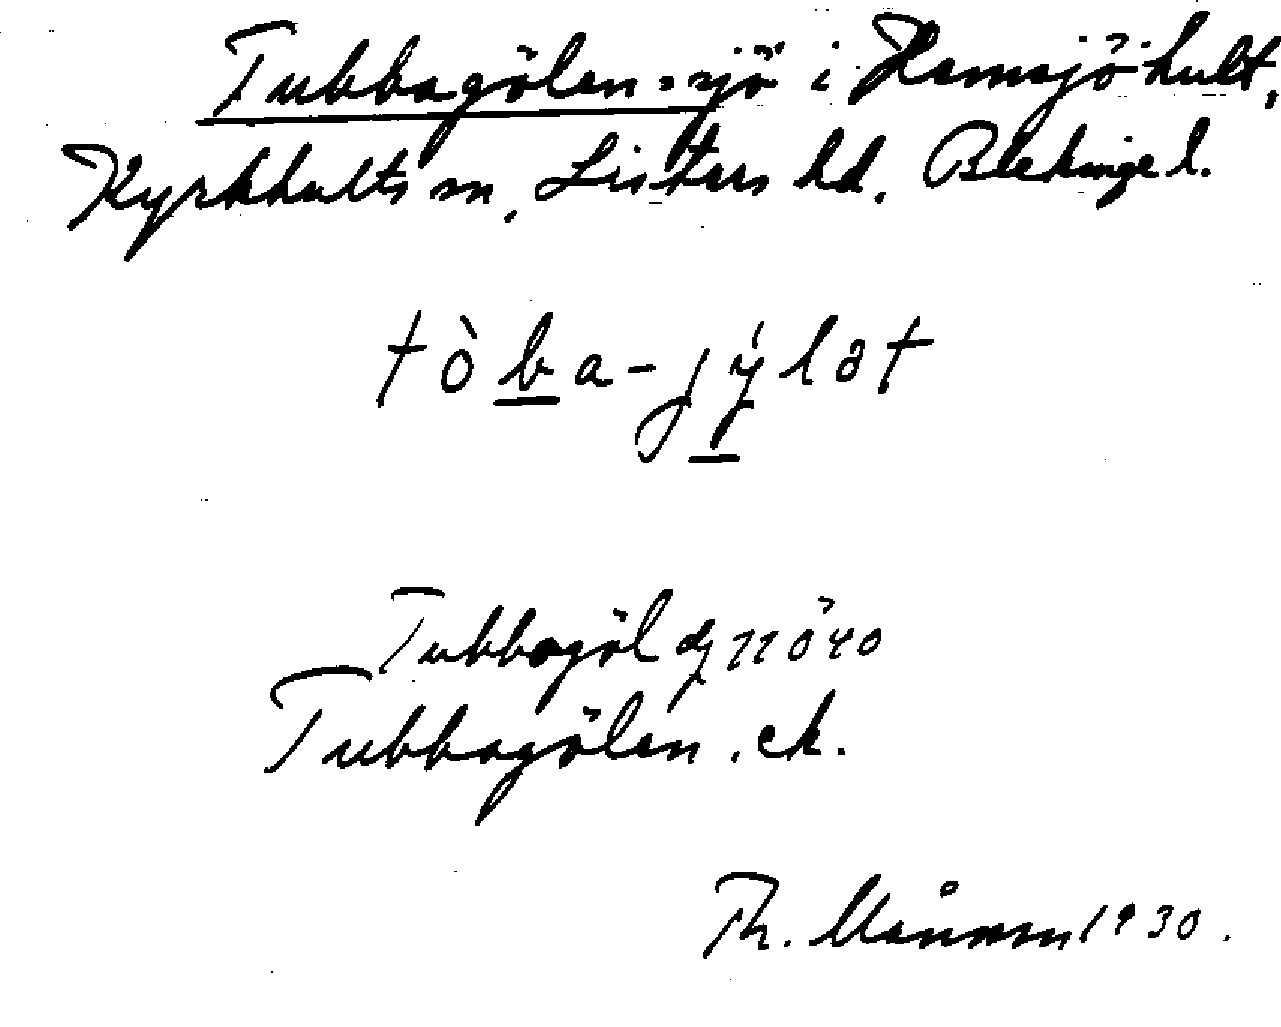 Tubbagölen, sjö i Hemsjöhult,
Kyrkhults sn, Listers hd, Blekinge l.
tòba-jýlət
Tubbagöl dj 11 ö 40
Tubbagölen, ek.
Th. 1930.